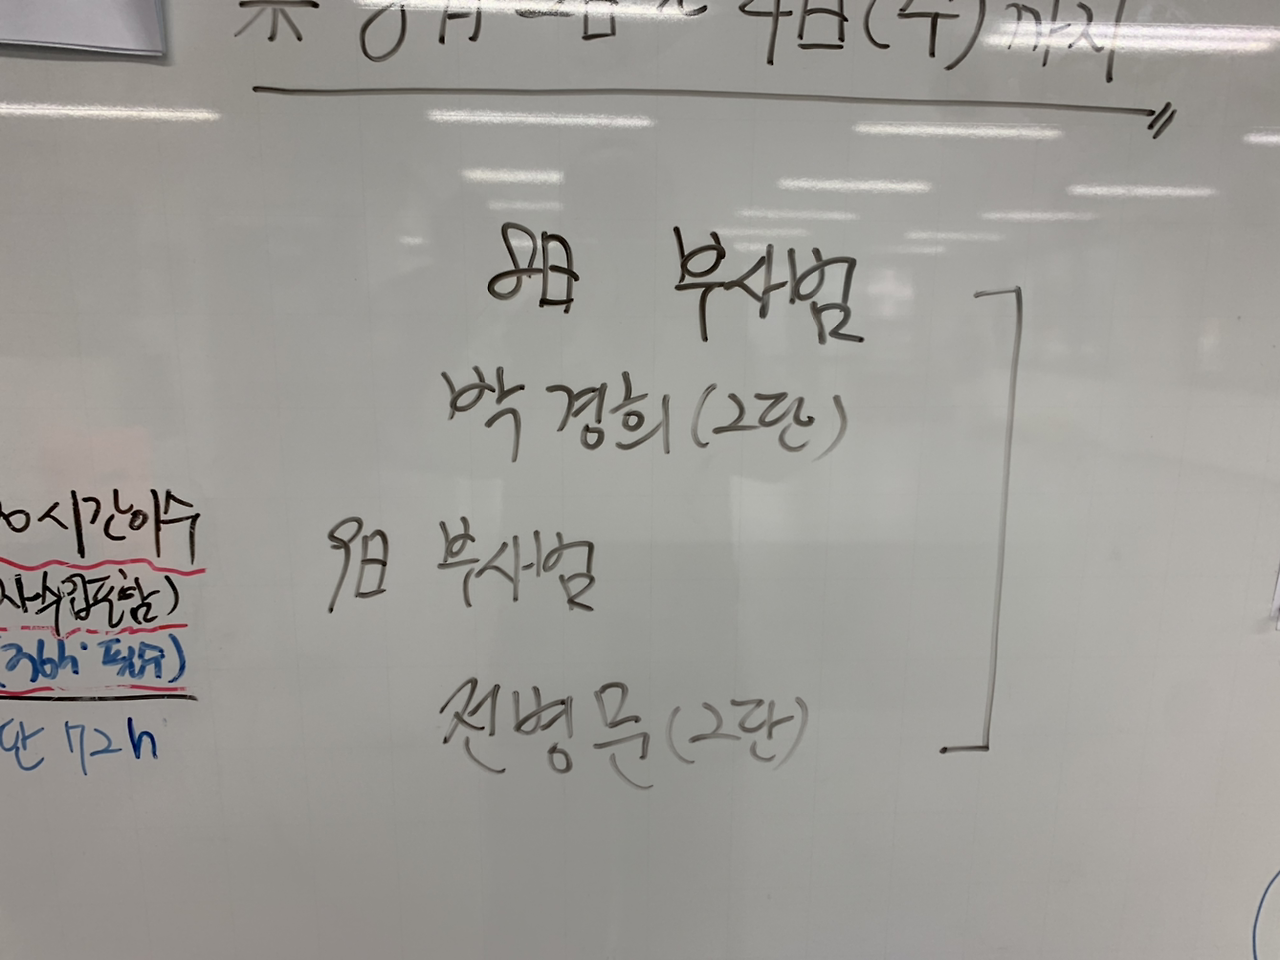 4日(수)까지
8日 부사범
박경희(2단)
9日 부사범
전병문(2단)
시간이수
(36h 필수)
단 72h